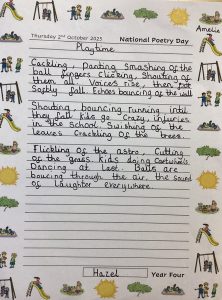 Amelia
Thursday 2nd October 2025
National Poetry Day
Playtime
Cackling, Panting Smashing of the
ball fingers Clicking, Shouting of
them all Voices rise, then
Softly fall. Echos bouncing of the wall
Shouting, bouncing running until
they fall kids go crazy, injuries
in the School. Swishing of the
leaves Crackling of the trees.
Flickling of the astro. Cutting
of the grass kids doing Cartwheels
Dancing at last. Balls are
boucing through the air, the sound
of laughter everywhere.
Hazel
Year Four